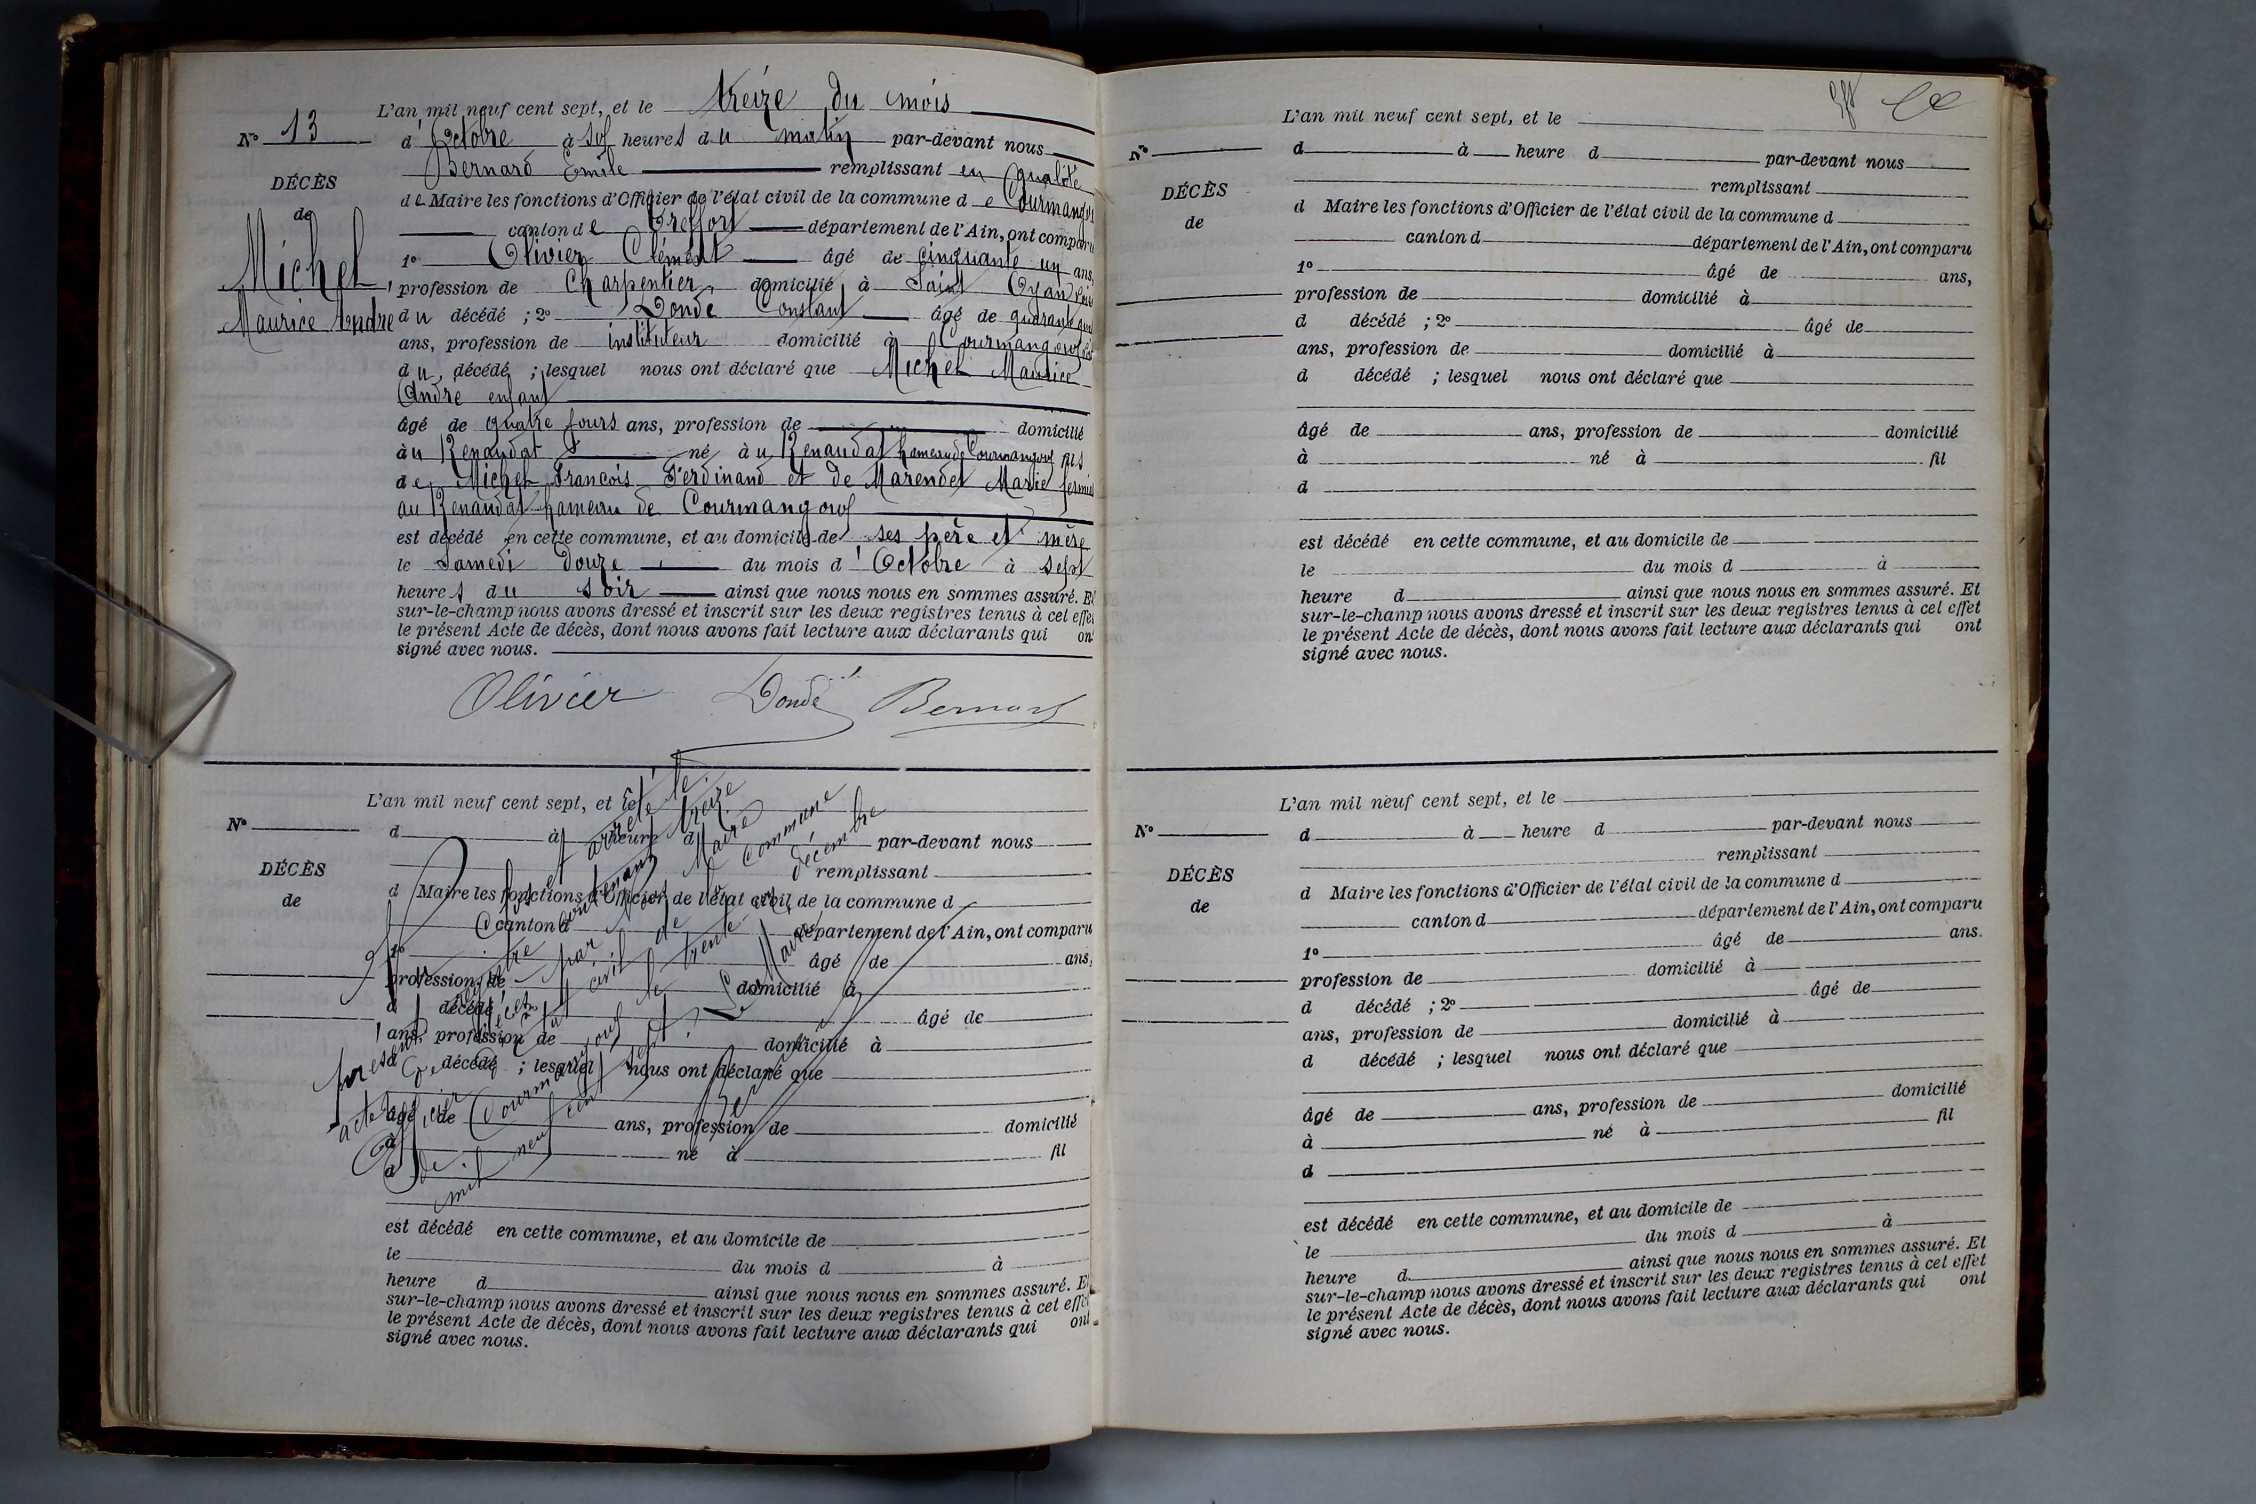 L'an mil neuf cent sept, et le treize du mois
N° 13
d'Octobre à sept heures du matin par-devant nous
Bernard Emile remplissant en qualité
DÉCÈS
de Maire les fonctions d'Officier de l'état civil de la commune de Courmangoux
de
canton de Treffort département de l'Ain, ont comparu
Michel
Maurice Andre
1° Olivier Clément âgé de cinquante un ans,
profession de Charpentier domicilié à Saint Cyan
du décédé ; 2° Donde Constant âgé de
ans, profession de instituteur domicilié à Courmangoux
du décédé ; lesquel nous ont déclaré que Michel Maurice
André enfant
âgé de quatre jours ans, profession de domicilié
au Renaudat né au Renaudat hameau de Courmangoux fils
de Michel Francois Ferdinand et de Marendet Marie
au Renaudat hameau de Courmangoux
est décédé en cette commune, et au domicile de ses père et mère
le Samedi douze du mois d'Octobre à sept
heures du soir ainsi que nous nous en sommes assuré. Et
sur-le-champ nous avons dressé et inscrit sur les deux registres tenus à cel effet
le présent Acte de décès, dont nous avons fait lecture aux déclarants qui ont
signé avec nous.
Olivier Dondé Bernard
L'an mil neuf cent sept, et le
N°
d à heure d par-devant nous
remplissant
DÉCÈS
d Maire les fonctions d'Officier de l'état civil de la commune d
de
canton d département de l'Ain, ont comparu
1° âgé de ans,
profession de domicilié à
d décédé âgé de
ans, profession de domicilié à
d décédé ; lesquel nous ont déclaré que
âgé de ans, profession de domicilié
à né à fil
d
est décédé en cette commune, et au domicile de
le du mois d à
heure d ainsi que nous nous en sommes assuré. Et
sur-le-champ nous avons dressé et inscrit sur les deux registres tenus à cet effet
le présent Acte de décès, dont nous avons fait lecture aux déclarants qui ont
signé avec nous.
clos et arrêté le
présent registre contenant treize
actes de décès par nous Maire
Officier de l'état civil de la commune
de Courmangoux le trente un décembre
mil neuf cent sept.
Le Maire
Bernard
L'an mil neuf cent sept, et le
N°
d à heure d par-devant nous
remplissant
DÉCÈS
d Maire les fonctions d'Officier de l'état civil de la commune d
de
canton d département de l'Ain, ont comparu
1° âgé de ans,
profession de domicilié à
d décédé ; 2° âgé de
ans, profession de domicilié à
d décédé ; lesquel nous ont déclaré que
âgé de ans, profession de domicilié
à né à fil
d
est décédé en cette commune, et au domicile de
le du mois d à
heure d ainsi que nous nous en sommes assuré. Et
sur-le-champ nous avons dressé et inscrit sur les deux registres tenus à cel effet
le présent Acte de décès, dont nous avons fait lecture aux déclarants qui ont
signé avec nous.
L'an mil neuf cent sept, et le
N°
d à heure d par-devant nous
remplissant
DÉCÈS
d Maire les fonctions d'Officier de l'état civil de la commune d
de
canton d département de l'Ain, ont comparu
1° âgé de ans.
profession de domicilié à
d décédé ; 2° âgé de
ans, profession de domicilié à
d décédé ; lesquel nous ont déclaré que
âgé de ans, profession de domicilié
à né à fil
d
est décédé en cette commune, et au domicile de
le du mois d à
heure d ainsi que nous nous en sommes assuré. Et
sur-le-champ nous avons dressé et inscrit sur les deux registres tenus à cel effet
le présent Acte de décès, dont nous avons fait lecture aux déclarants qui ont
signé avec nous.